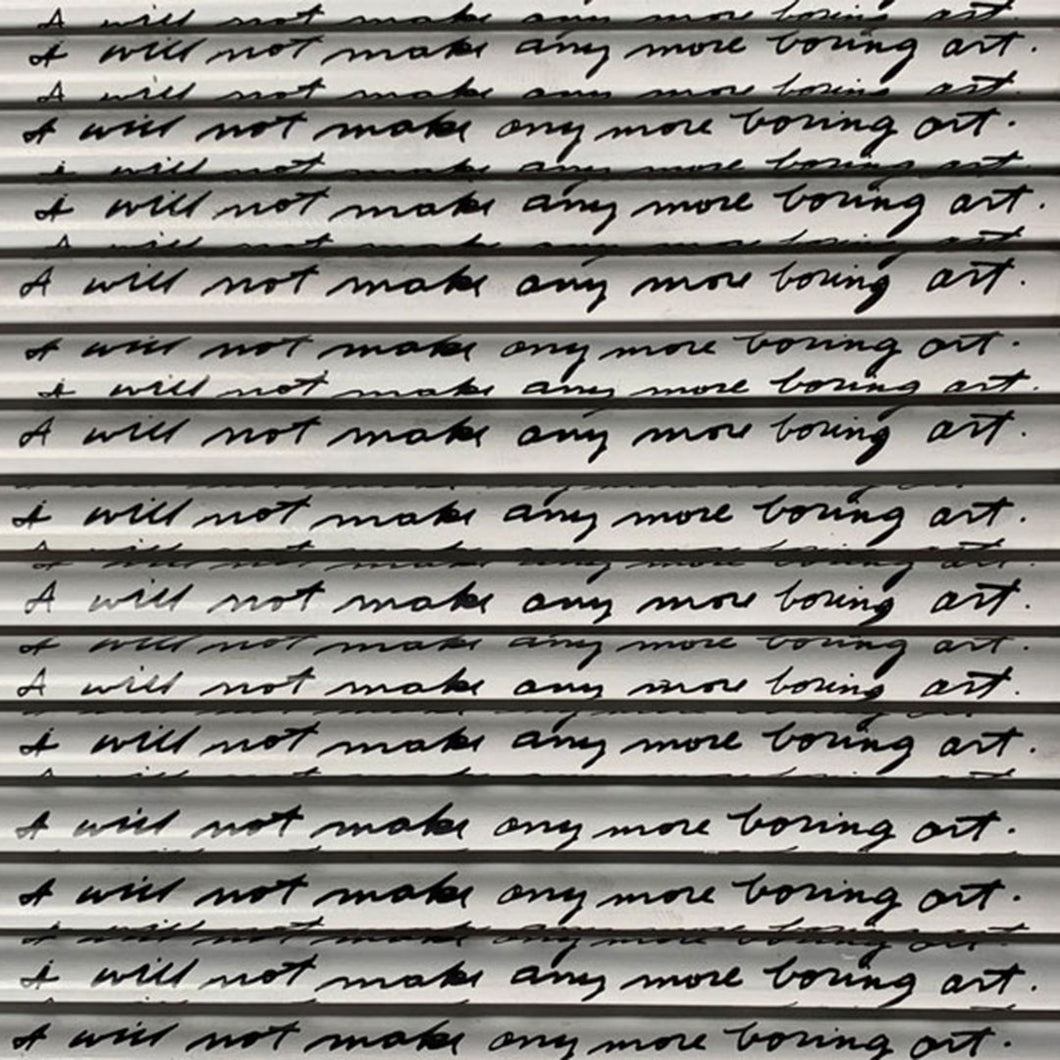 I will not make any more boring art
I will not make any more boring art.
I will not make any more boring art
I will not make any more boring art.
I will not make any more boring art
I will not make any more boring art.
I will not make any more boring art.
I will not make any more boring art.
I will not make any more boring art.
I will not make any more boring art.
I will not make any more boring art.
I will not make any more boring art.
I will not make any more boring art.
I will not make any more boring art.
I will not make any more boring art.
I will not make any more boring art.
I will not make any more boring art.
I will not make any more boring art.
I will not make any more boring art.